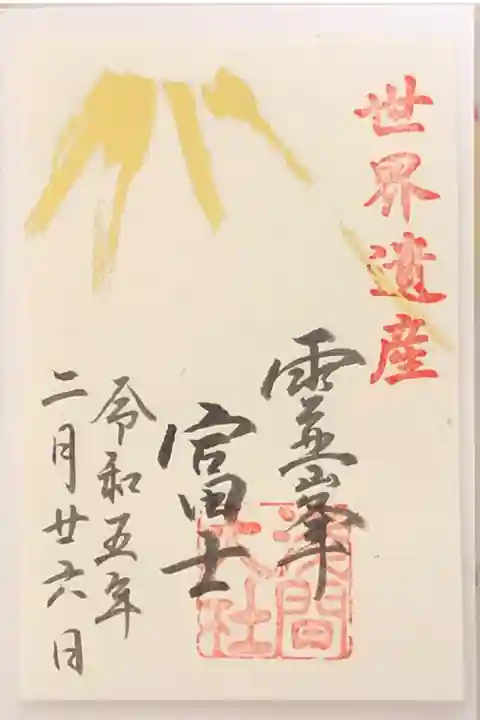 世界遺産
霊峯
富士
浅間
大社
令和五年
二月廿六日